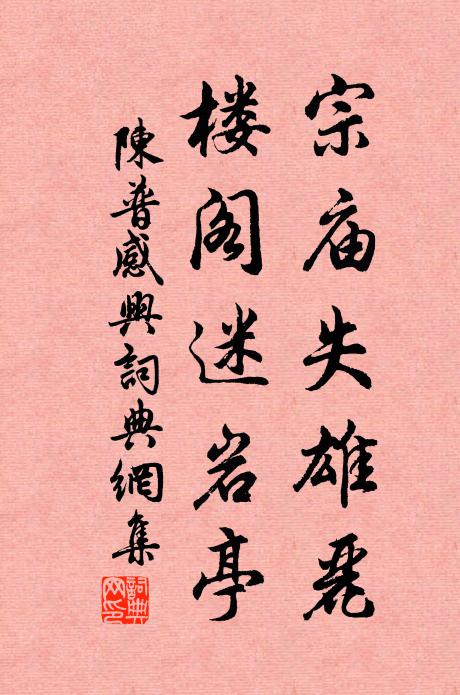 宗庙失雄丽
楼阁迷岩亭
陳普感興詞典網集
詞典网印